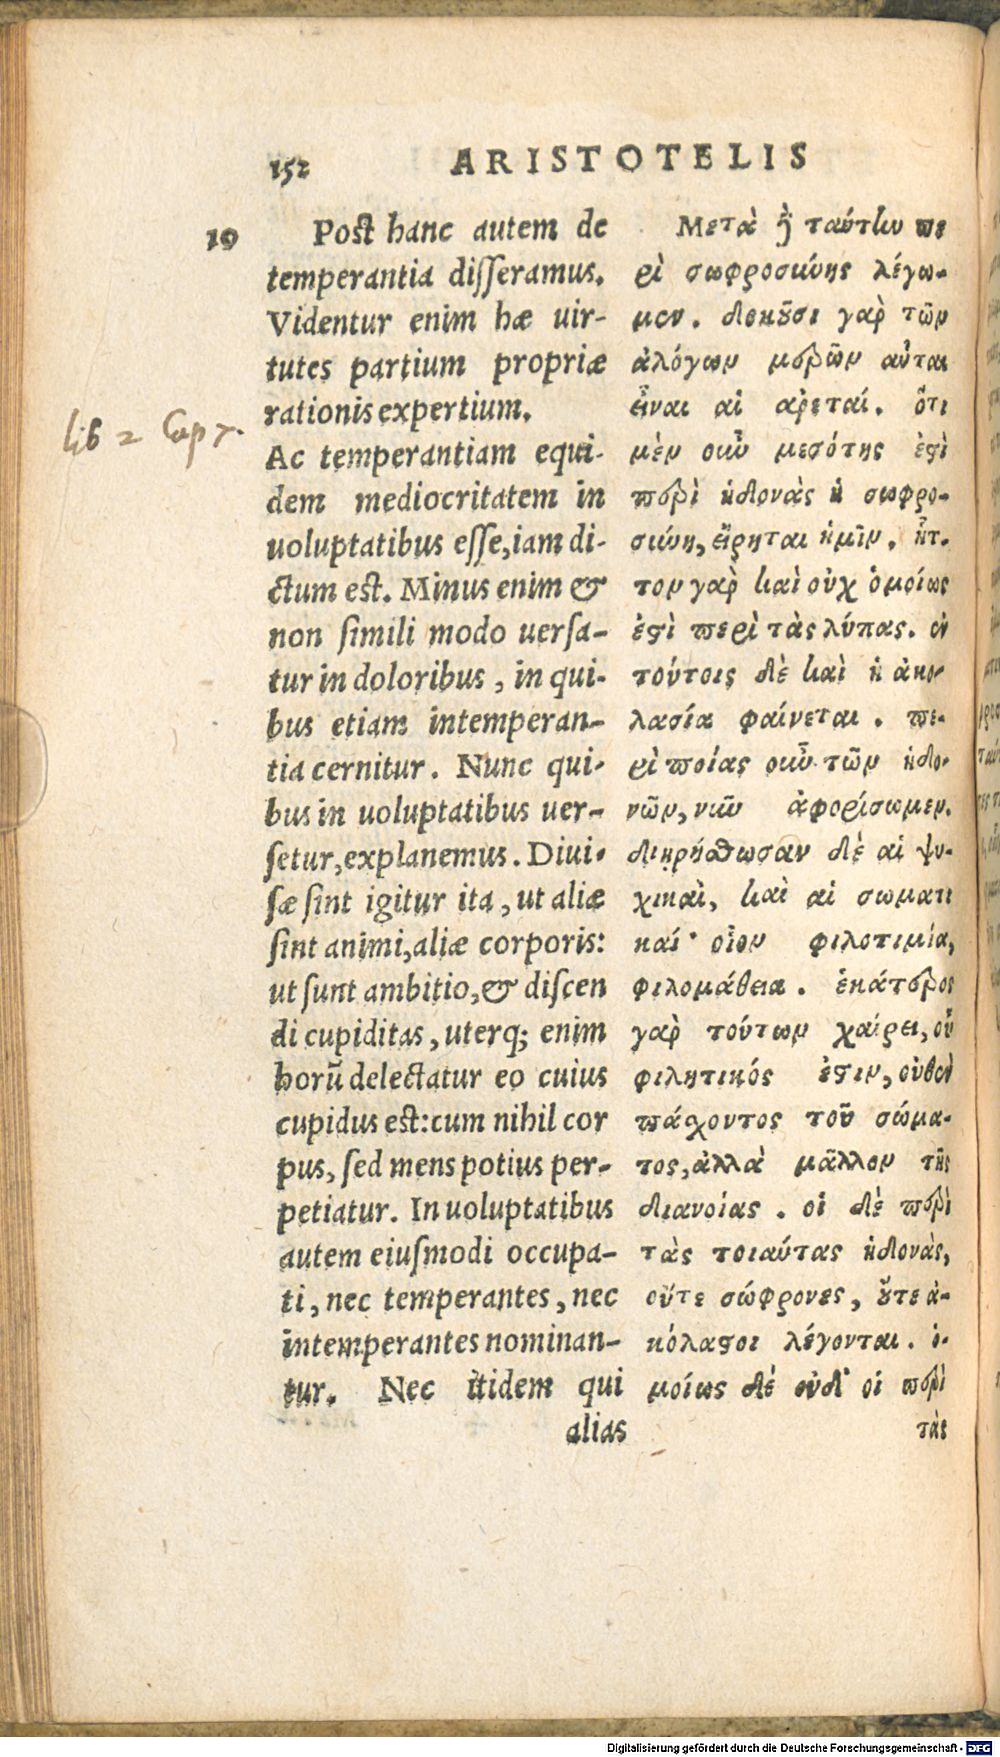 152 ARISTOTELIS
10 Post hanc autem de
temperantia disseramus.
Videntur enim hæ uir-
tutes partium propriæ
rationis expertium.
lib 2 Cap 7.
Ac temperantiam equi-
dem mediocritatem in
uoluptatibus esse, iam di-
ctum est. Minus enim &
non simili modo uersa-
tur in doloribus, in qui-
bus etiam intemperan-
tia cernitur. Nunc qui-
bus in uoluptatibus uer-
setur, explanemus. Diui-
sæ sint igitur ita, ut aliæ
sint animi, aliæ corporis:
ut sunt ambitio, & discen
di cupiditas, uterq; enim
horũ delectatur eo cuius
cupidus est: cum nihil cor
pus, sed mens potius per-
petiatur. In uoluptatibus
autem eiusmodi occupa-
ti, nec temperantes, nec
intemperantes nominan-
tur. Nec itidem qui
alias
Μετὰ δὲ ταύτην πε
ρὶ σωφροσύνης λέγω-
μεν. δοκοῦσι γὰρ τῶν
ἀλόγων μερῶν αὗται
εἶναι αἱ ἀρεταί. ὅτι
μὲν οὖν μεσότης ἐστὶ
περὶ ἡδονὰς ἡ σωφρο-
σύνη, εἴρηται ἡμῖν. ἧτ-
τον γὰρ καὶ οὐχ ὁμοίως
ἐστὶ περὶ τὰς λύπας. ἐν
τούτοις δὲ καὶ ἡ ἀκο-
λασία φαίνεται. πε-
ρὶ ποίας οὖν τῶν ἡδο-
νῶν, νῦν ἀφορίσωμεν.
διῃρήσθωσαν δὲ αἱ ψυ-
χικαὶ, καὶ αἱ σωματι
καί· οἷον φιλοτιμία,
φιλομάθεια. ἑκάτερος
γὰρ τούτων χαίρει, οὗ
φιλητικός ἐστιν, οὐθὲν
πάσχοντος τοῦ σώμα-
τος, ἀλλὰ μᾶλλον τῆς
διανοίας. οἱ δὲ περὶ
τὰς τοιαύτας ἡδονὰς,
οὔτε σώφρονες, οὔτε ἀ-
κόλαστοι λέγονται. ὁ-
μοίως δὲ οὐδ' οἱ περὶ
τὰς
Digitalisierung gefördert durch die Deutsche Forschungsgemeinschaft - DFG